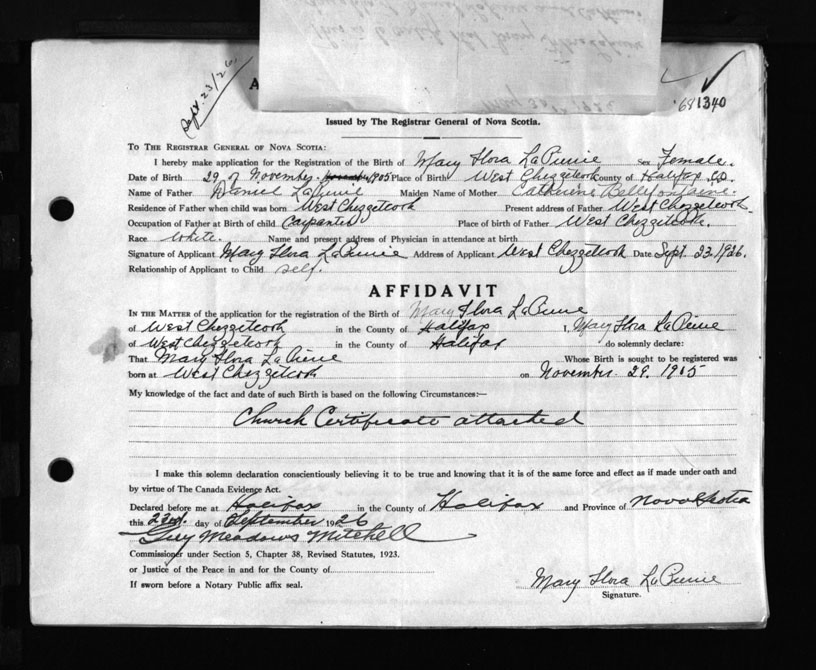 Sept. 23/26.
A
681340
Issued by The Registrar General of Nova Scotia.
TO THE REGISTRAR GENERAL OF NOVA SCOTIA:
I hereby make application for the Registration of the Birth of Mary Flora LaPierre Sex Female.
Date of Birth 29 of November 1905 Place of Birth West Chezzetcook County of Halifax Co.
Name of Father Daniel LaPierre Maiden Name of Mother Catherine Bellefontaine.
Residence of Father when child was born West Chezzetcook Present address of Father West Chezzetcook.
Occupation of Father at Birth of child Carpenter Place of birth of Father West Chezzetcook.
Race White. Name and present address of Physician in attendance at birth
Signature of Applicant Mary Flora LaPierre Address of Applicant West Chezzetcook Date Sept. 23. 1926.
Relationship of Applicant to Child self.
AFFIDAVIT
IN THE MATTER of the application for the registration of the Birth of Mary Flora LaPierre
of West Chezzetcook in the County of Halifax I, Mary Flora LaPierre
of West Chezzetcook in the County of Halifax do solemnly declare:
That Mary Flora LaPierre Whose Birth is sought to be registered was
born at West Chezzetcook on November. 29. 1905
My knowledge of the fact and date of such Birth is based on the following Circumstances:—
Church Certificate attached
I make this solemn declaration conscientiously believing it to be true and knowing that it is of the same force and effect as if made under oath and
by virtue of The Canada Evidence Act.
Declared before me at Halifax in the County of Halifax and Province of Nova Scotia
this 23rd. day of September 1926
Guy Meadows Mitchell
Commissioner under Section 5, Chapter 38, Revised Statutes, 1923.
or Justice of the Peace in and for the County of
If sworn before a Notary Public affix seal.
Mary Flora LaPierre
Signature.